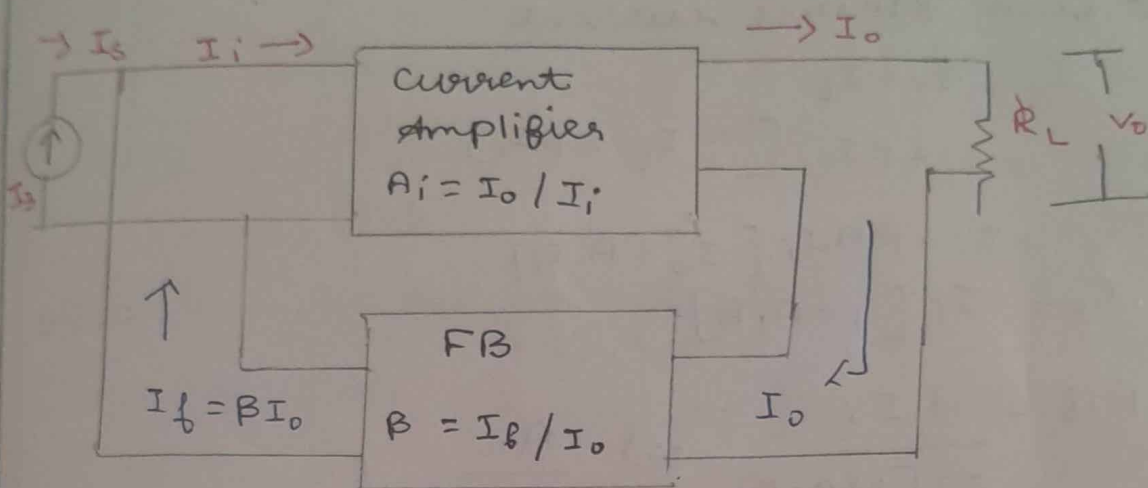 → Is
Ii →
→ Io
Current
Amplifier
Ai = Io / Ii
RL
Vo
Is
FB
If = βIo
β = If / Io
Io